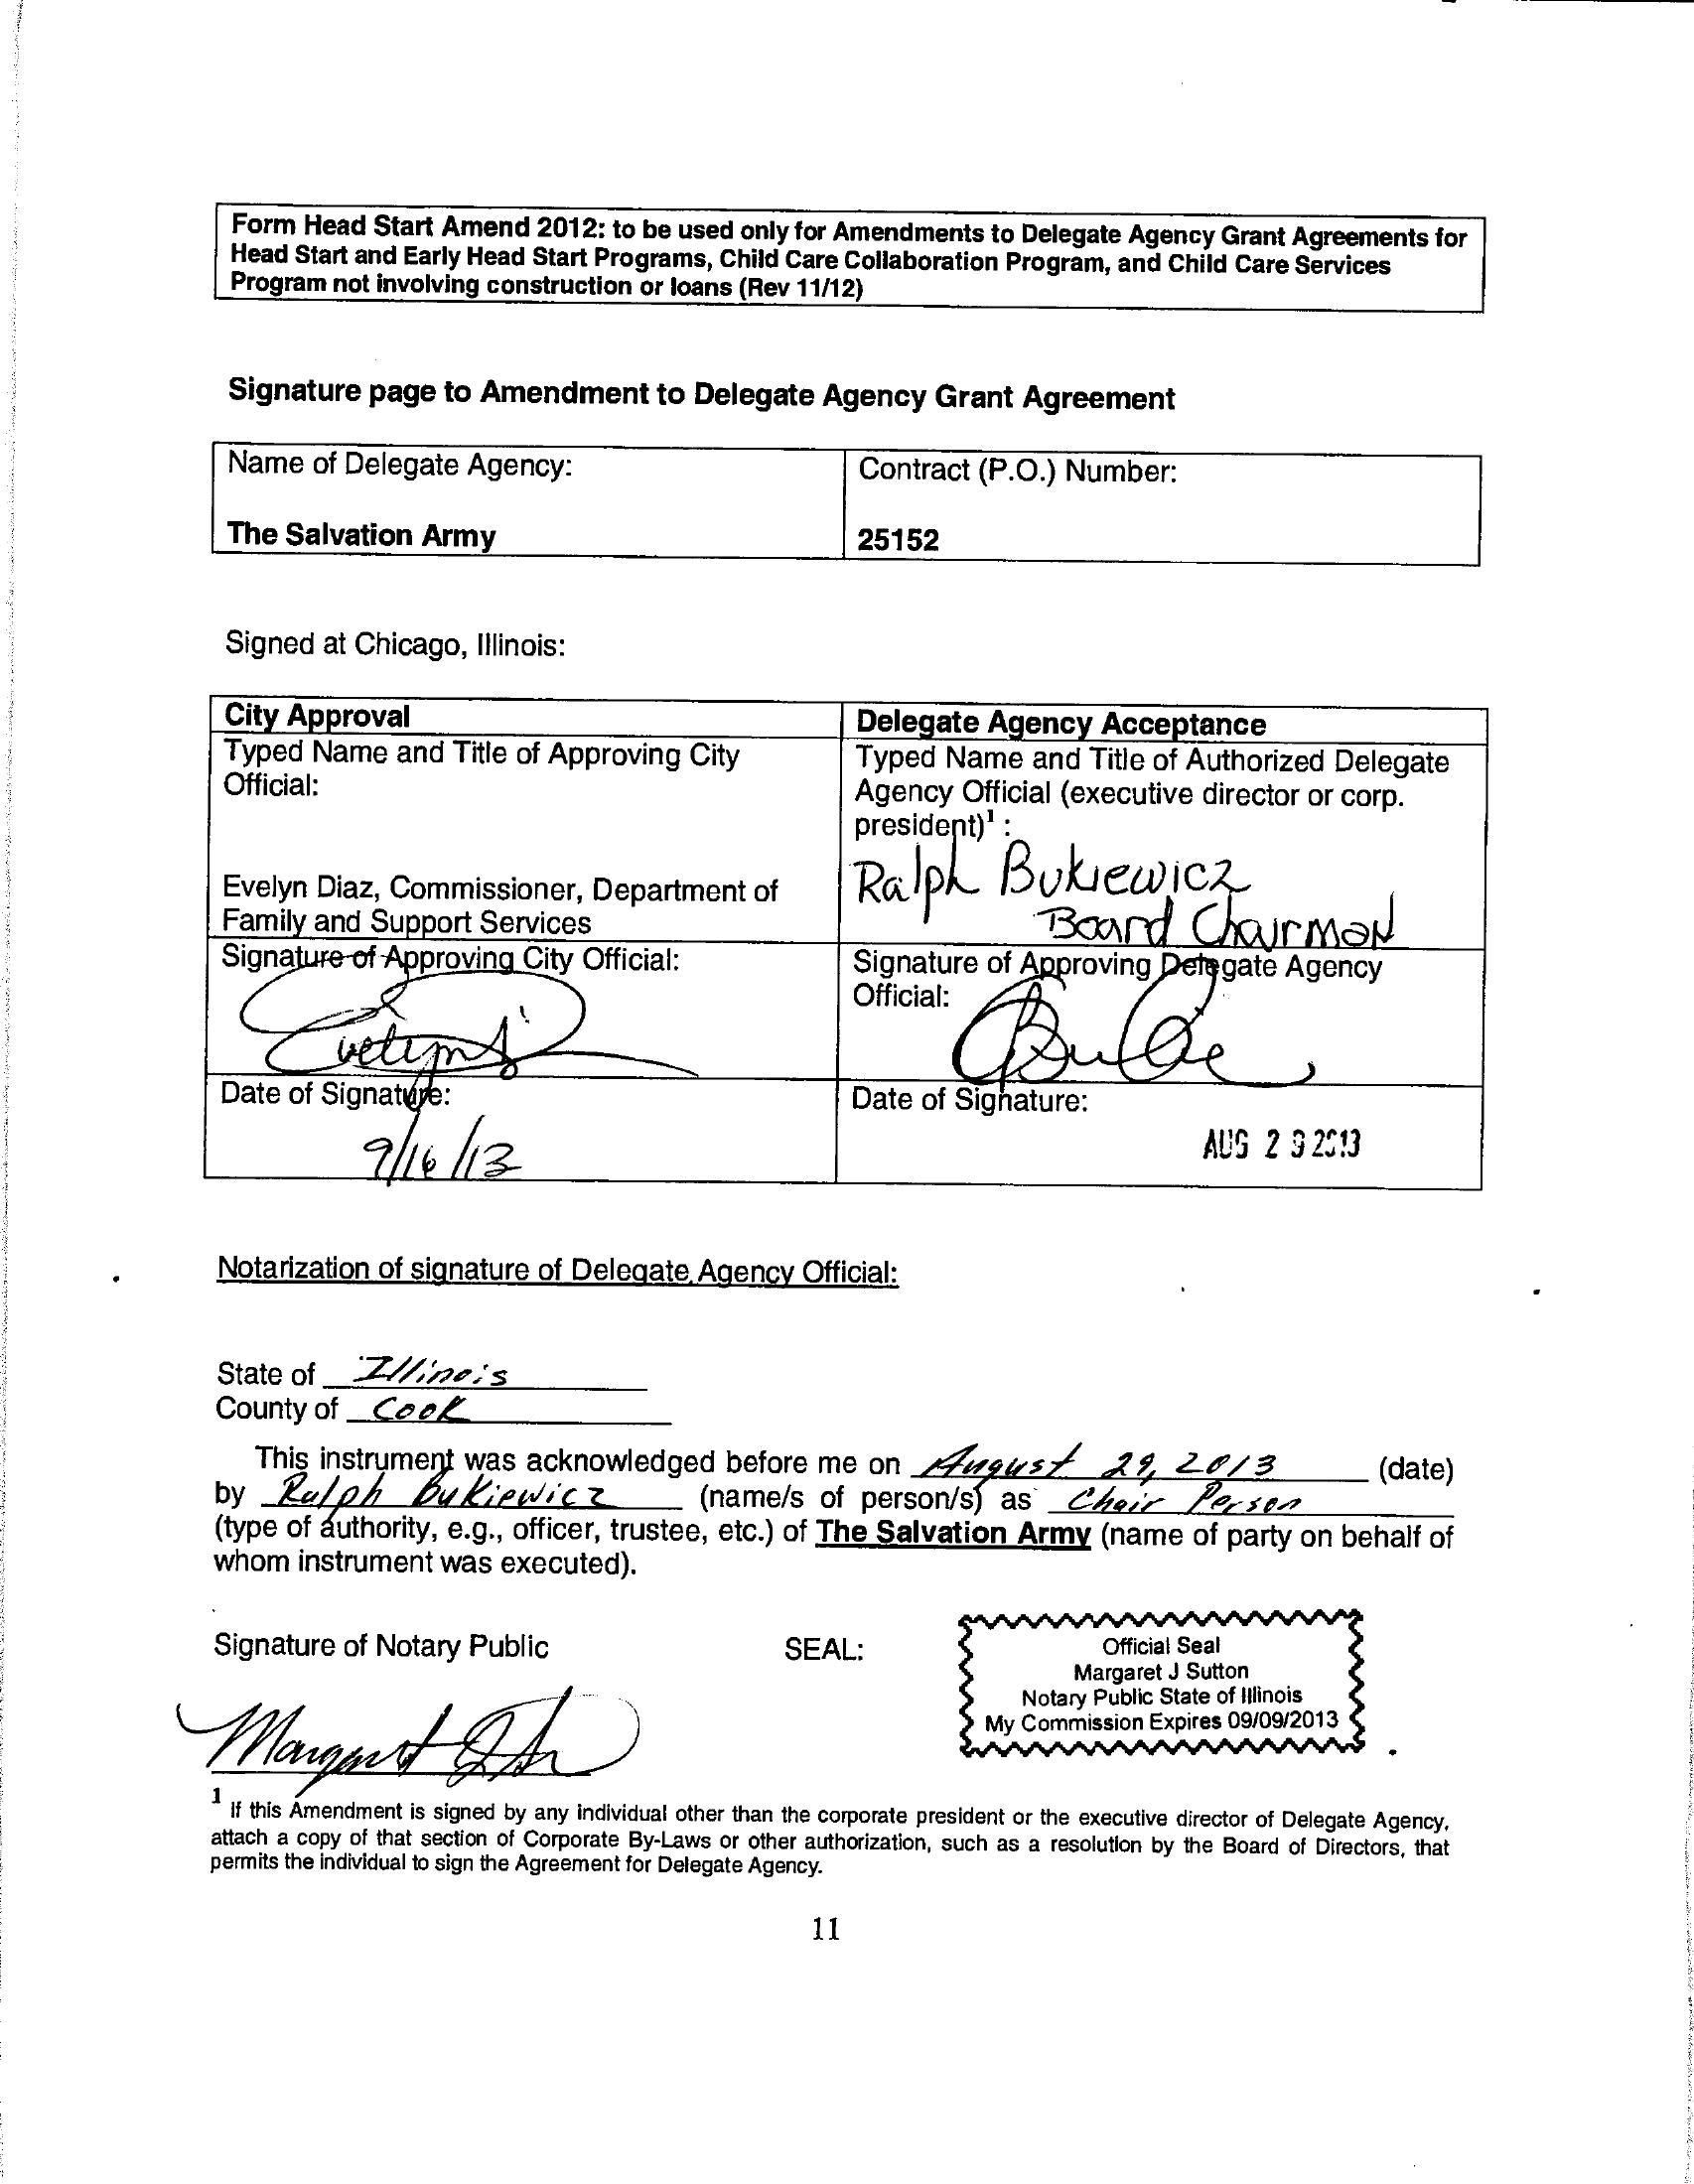 Form Head Start Amend 2012: to be used only for Amendments to Delegate Agency Grant Agreements for
Head Start and Early Head Start Programs, Child Care Collaboration Program, and Child Care Services
Program not involving construction or loans (Rev 11/12)
Signature page to Amendment to Delegate Agency Grant Agreement
Name of Delegate Agency:
The Salvation Army
Contract (P.O.) Number:
25152
Signed at Chicago, Illinois:
City Approval
Typed Name and Title of Approving City
Official:
Evelyn Diaz, Commissioner, Department of
Family and Support Services
Signature of Approving City Official:
Date of Signature:
9/16/13
Delegate Agency Acceptance
Typed Name and Title of Authorized Delegate
Agency Official (executive director or corp.
president)¹ :
Ralph Bukiewicz
Board Chairman
Signature of Approving Delegate Agency
Official:
Date of Signature:
AUG 29 2013
Notarization of signature of Delegate Agency Official:
State of Illinois
County of Cook
This instrument was acknowledged before me on August 29, 2013 (date)
by Ralph Bukiewicz (name/s of person/s) as Chair Person
(type of authority, e.g., officer, trustee, etc.) of The Salvation Army (name of party on behalf of
whom instrument was executed).
Signature of Notary Public
SEAL:
Official Seal
Margaret J Sutton
Notary Public State of Illinois
My Commission Expires 09/09/2013
1 If this Amendment is signed by any individual other than the corporate president or the executive director of Delegate Agency,
attach a copy of that section of Corporate By-Laws or other authorization, such as a resolution by the Board of Directors, that
permits the individual to sign the Agreement for Delegate Agency.
11